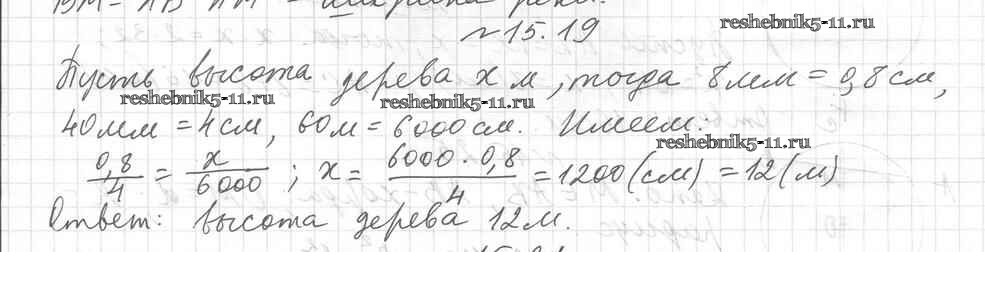 №15.19
reshebnik5-11.ru
Пусть высота дерева x м, тогда 8мм = 0,8 см,
reshebnik5-11.ru reshebnik5-11.ru
40мм = 4см, 60м = 6000см. Имеем:
reshebnik5-11.ru
0,8/4 = x/6000 ; x = 6000·0,8/4 = 1200(см) = 12(м)
Ответ: высота дерева 12м.